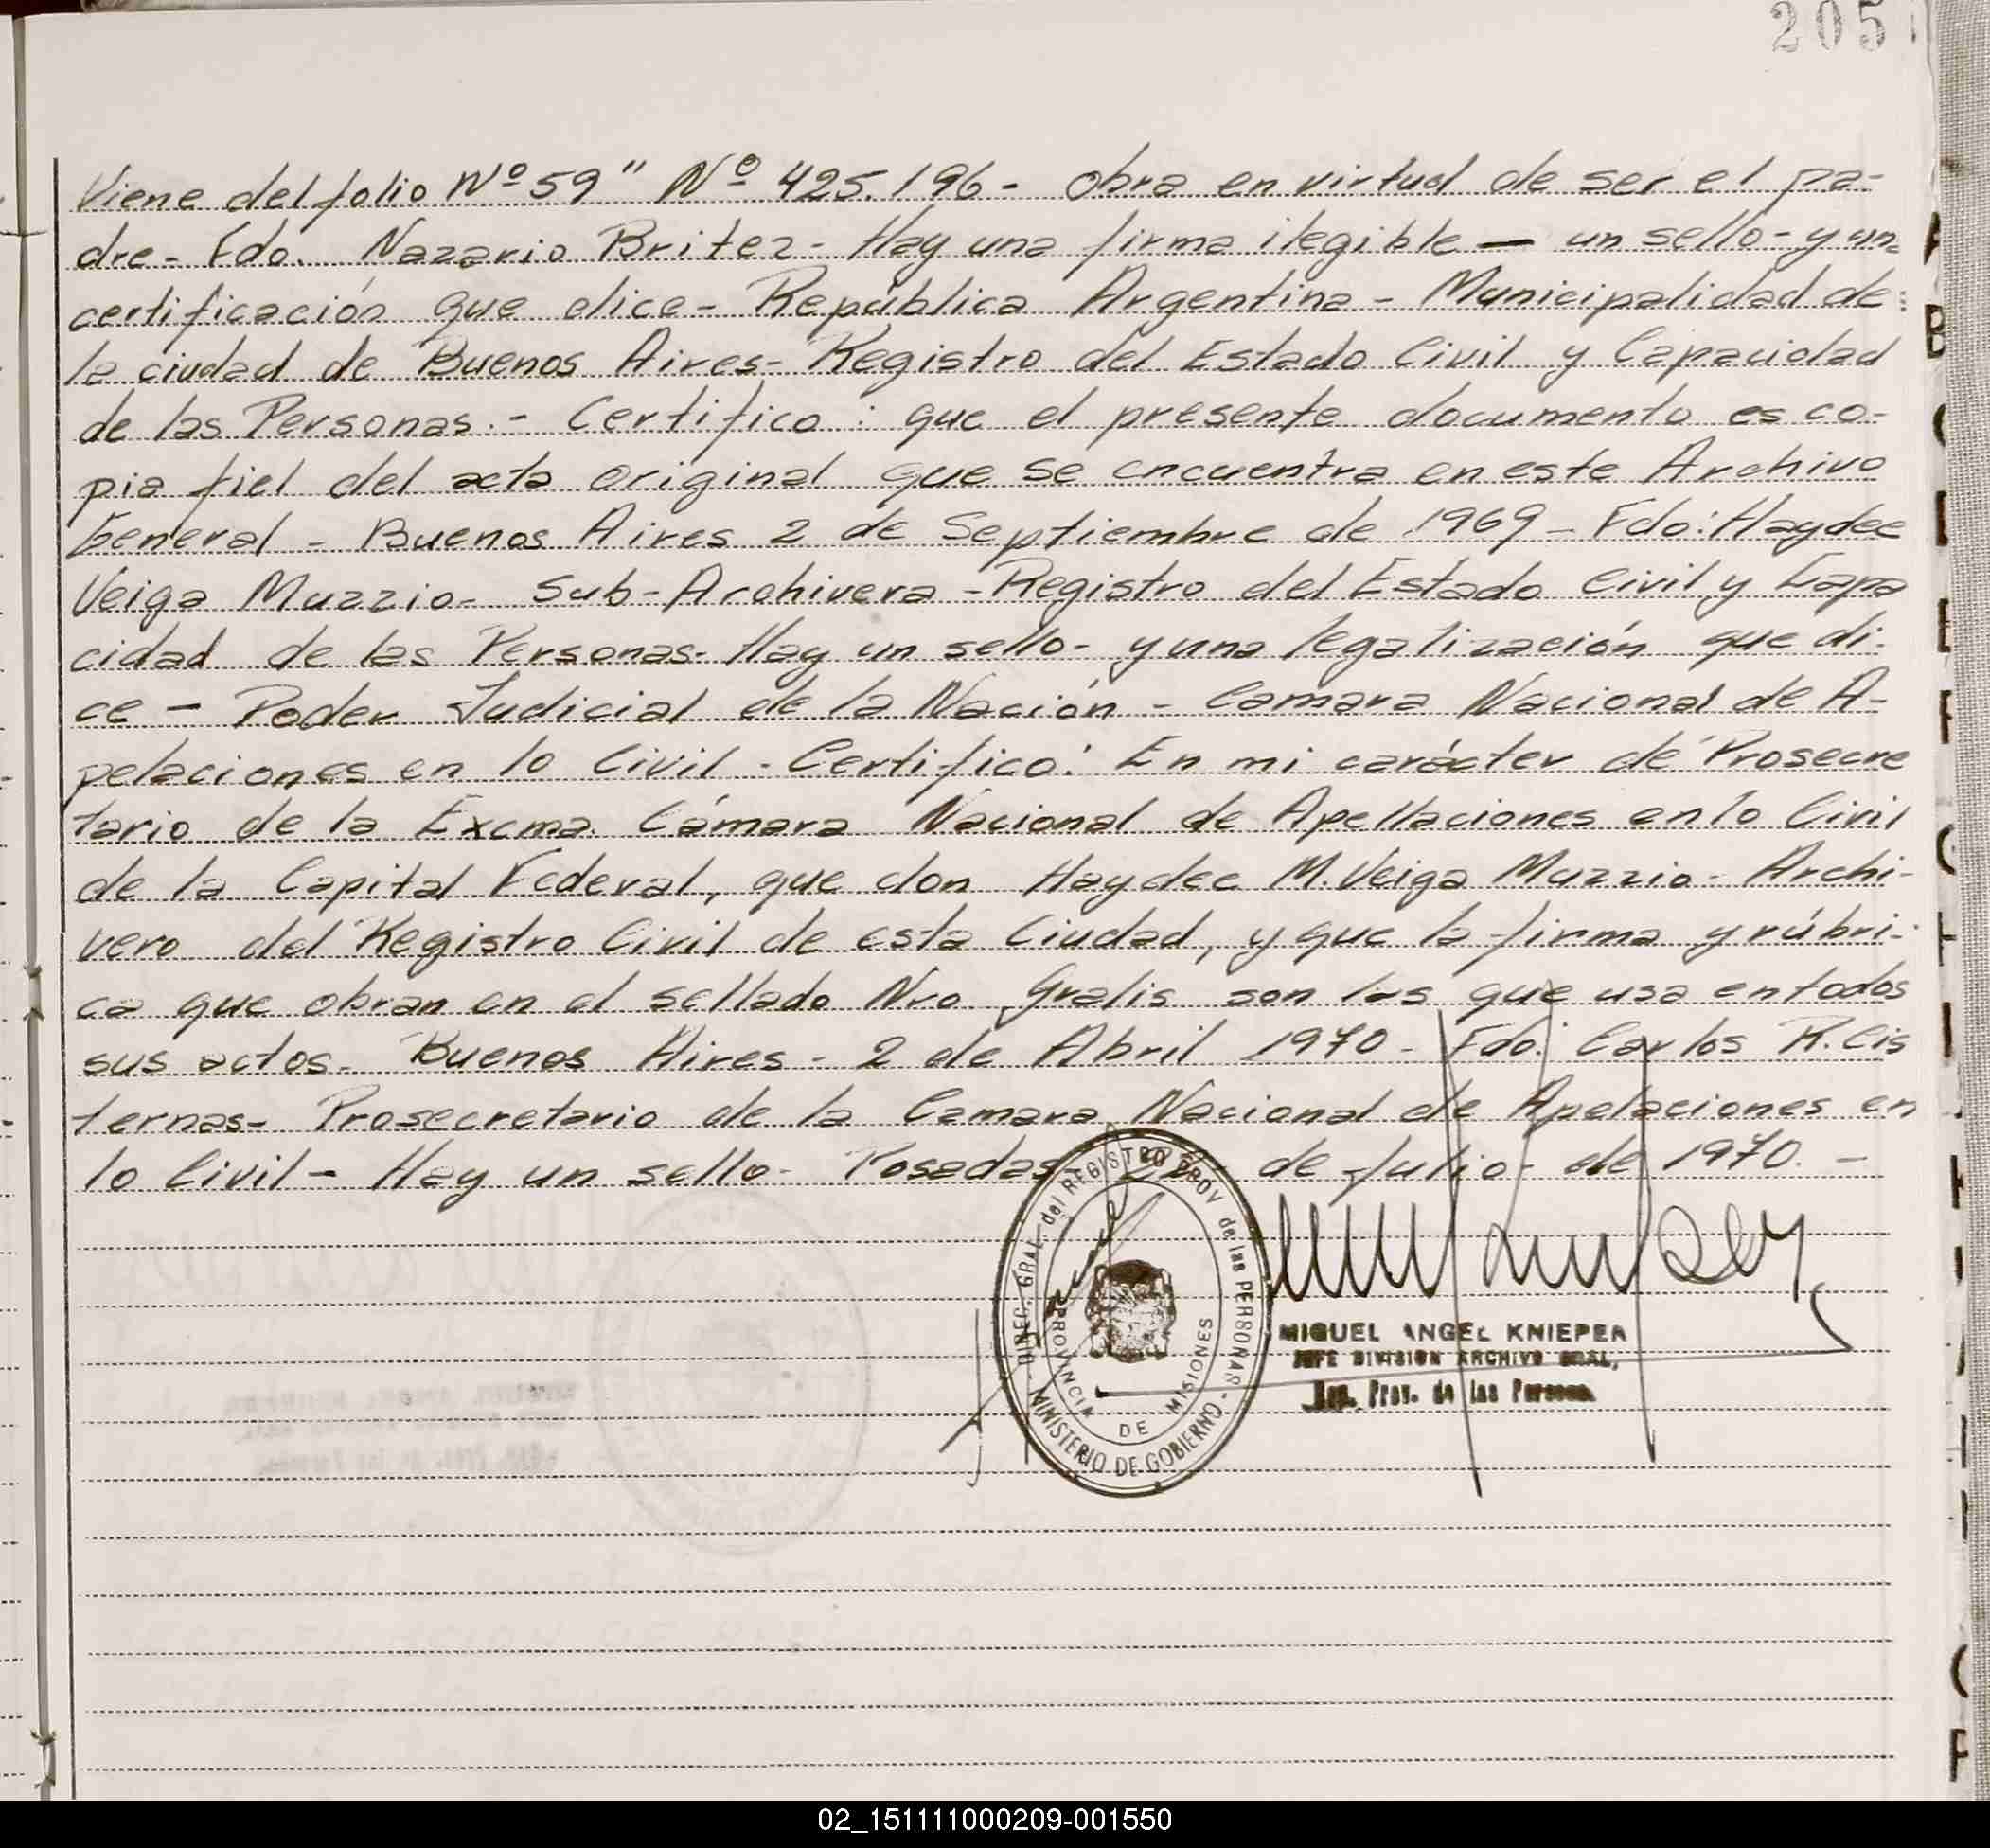 205
Viene del folio Nº 59" Nº 425.196- obra en virtud de ser el pa-
dre- Fdo. Nazario Britez- Hay una firma ilegible — un sello- y un
certificación que dice- República Argentina - Municipalidad de
la ciudad de Buenos Aires- Registro del Estado Civil y Capacidad
de las Personas.- Certifico: que el presente documento es co-
pia fiel del acta original que se encuentra en este Archivo
General - Buenos Aires 2 de Septiembre de 1969 - Fdo: Haydee
Veiga Muzzio- Sub-Archivera - Registro del Estado Civil y Capa
cidad de las Personas- Hay un sello- y una legalización que di-
ce - Poder Judicial de la Nación - Camara Nacional de A-
pelaciones en lo Civil - Certifico: En mi carácter de Prosecre
tario de la Excma. Cámara Nacional de Apellaciones en lo Civil
de la Capital Federal, que don Haydee M. Veiga Muzzio- Archi-
vero del Registro Civil de esta Ciudad, y que la firma y rúbri-
ca que obran en el sellado Nro Gratis son las que usa en todos
sus actos- Buenos Aires - 2 de Abril 1970 - Fdo: Carlos R. Cis
ternas- Prosecretario de la Camara Nacional de Apelaciones en
lo Civil - Hay un sello- Posadas de Julio- de 1970. -
DIREC. GRAL. del REGISTRO PROV de las PERSONAS
MINISTERIO DE GOBIERNO
PROVINCIA DE MISIONES
MIGUEL ANGEL KNIEPER
JEFE DIVISION ARCHIVO GRAL,
Reg. Prov. de las Personas
02_151111000209-001550